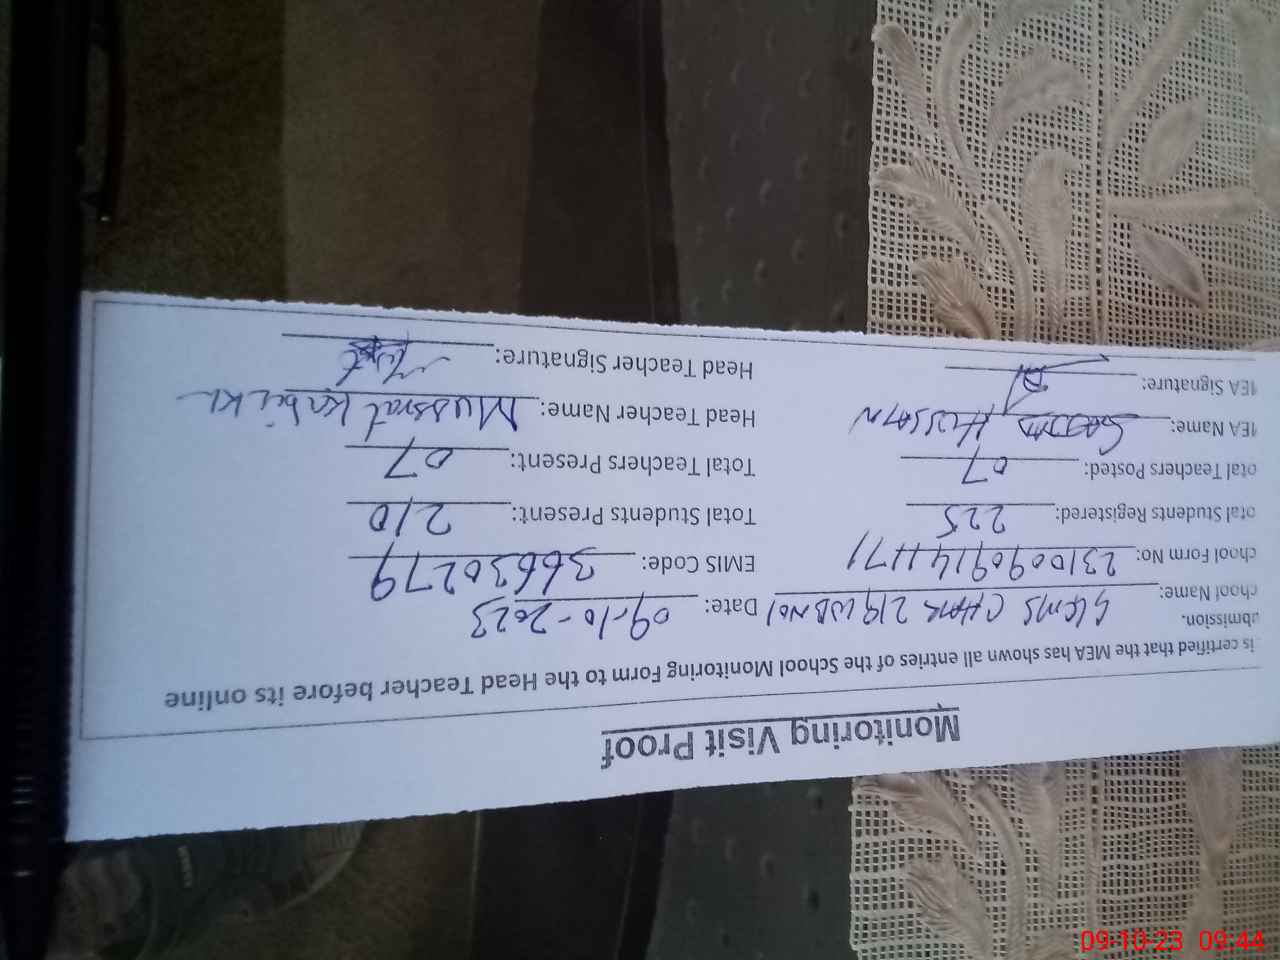 Monitoring Visit Proof
is certified that the MEA has shown all entries of the School Monitoring Form to the Head Teacher before its online
ubmission.
chool Name: CHAK 219 WB No1 Date: 09-10-2023
chool Form No: 23100909141171 EMIS Code: 36630279
otal Students Registered: 225 Total Students Present: 210
otal Teachers Posted: 07 Total Teachers Present: 07
MEA Name: HUSSAIN Head Teacher Name: Mussrat
MEA Signature: Head Teacher Signature:
09-10-23 09:44